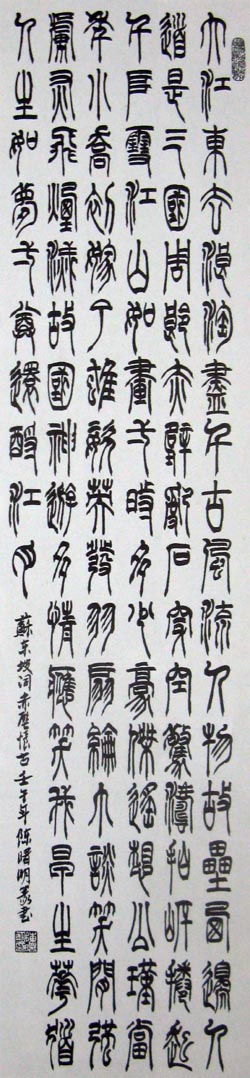 大江東去浪淘盡千古風流人物故壘西邊人
道是三國周郎赤壁亂石穿空驚濤拍岸捲起
千堆雪江山如畫一時多少豪傑遙想公瑾當
年小喬初嫁了雄姿英發羽扇綸巾談笑間強
虜灰飛煙滅故國神遊多情應笑我早生華髮
人生如夢一尊還酹江月
蘇東坡詞赤壁懷古壬午年陳明篆書